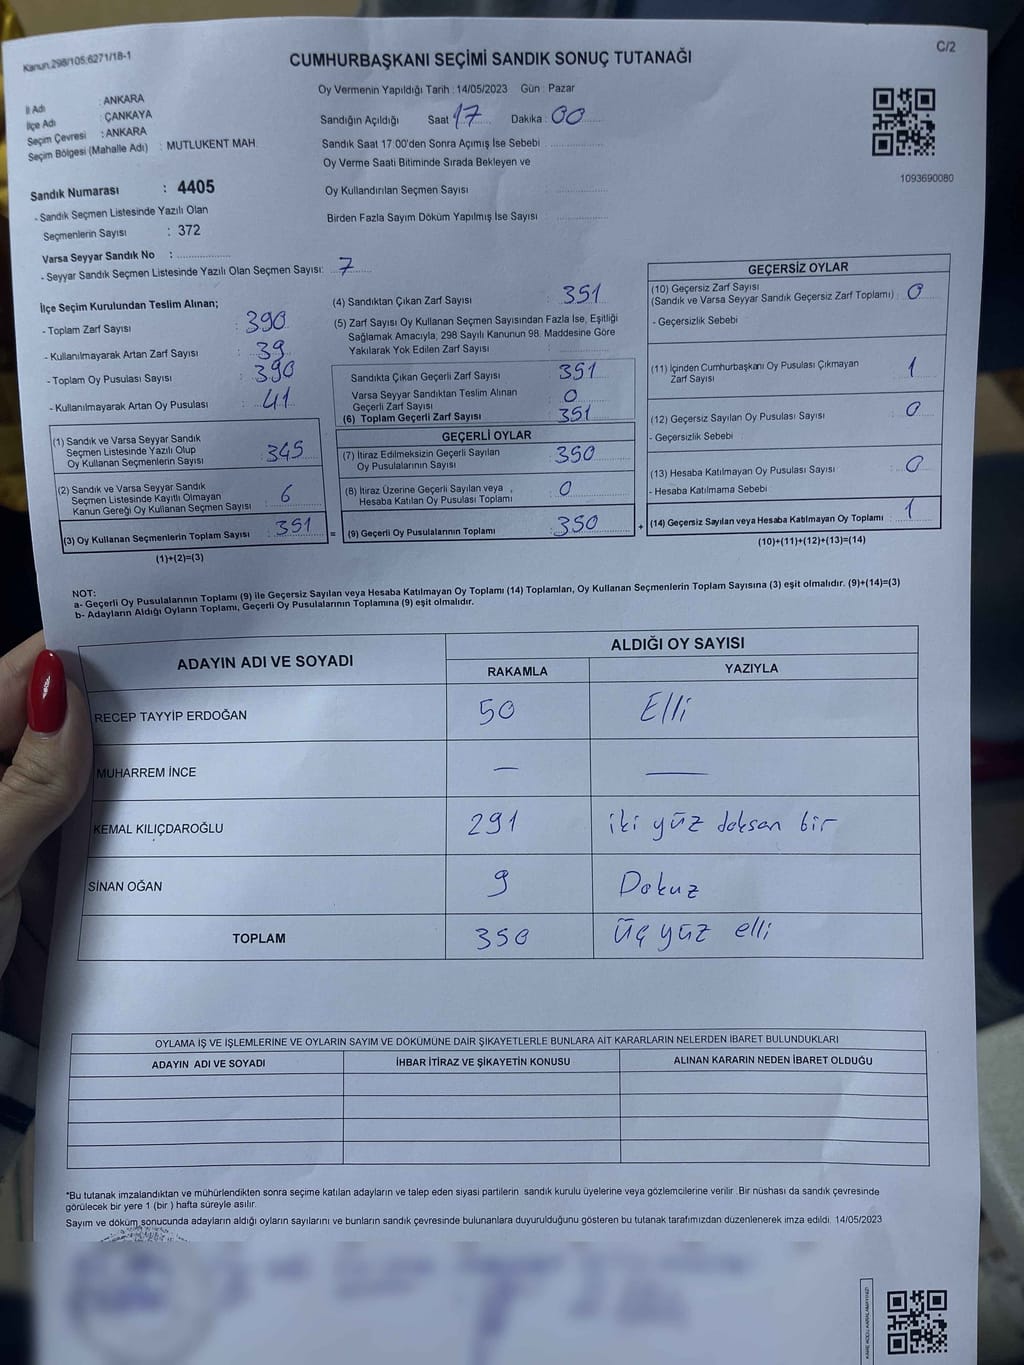 Kanun.298/105.6271/18-1
C/2
CUMHURBAŞKANI SEÇİMİ SANDIK SONUÇ TUTANAĞI
İl Adı : ANKARA
İlçe Adı : ÇANKAYA
Seçim Çevresi : ANKARA
Seçim Bölgesi (Mahalle Adı) : MUTLUKENT MAH.
Sandık Numarası : 4405
- Sandık Seçmen Listesinde Yazılı Olan
Seçmenlerin Sayısı : 372
Varsa Seyyar Sandık No :
- Seyyar Sandık Seçmen Listesinde Yazılı Olan Seçmen Sayısı: 7
Oy Vermenin Yapıldığı Tarih : 14/05/2023 Gün : Pazar
Sandığın Açıldığı Saat 17 Dakika : 00
Sandık Saat 17.00'den Sonra Açımış İse Sebebi
Oy Verme Saati Bitiminde Sırada Bekleyen ve
Oy Kullandırılan Seçmen Sayısı
Birden Fazla Sayım Döküm Yapılmış İse Sayısı
1093690080
İlçe Seçim Kurulundan Teslim Alınan;
- Toplam Zarf Sayısı : 390
- Kullanılmayarak Artan Zarf Sayısı : 39
- Toplam Oy Pusulası Sayısı : 390
- Kullanılmayarak Artan Oy Pusulası : 41
(1) Sandık ve Varsa Seyyar Sandık
Seçmen Listesinde Yazılı Olup
Oy Kullanan Seçmenlerin Sayısı : 345
(2) Sandık ve Varsa Seyyar Sandık
Seçmen Listesinde Kayıtlı Olmayan
Kanun Gereği Oy Kullanan Seçmen Sayısı : 6
(3) Oy Kullanan Seçmenlerin Toplam Sayısı : 351
(1)+(2)=(3)
(4) Sandıktan Çıkan Zarf Sayısı : 351
(5) Zarf Sayısı Oy Kullanan Seçmen Sayısından Fazla İse, Eşitliği
Sağlamak Amacıyla, 298 Sayılı Kanunun 98. Maddesine Göre
Yakılarak Yok Edilen Zarf Sayısı :
Sandıkta Çıkan Geçerli Zarf Sayısı : 351
Varsa Seyyar Sandıktan Teslim Alınan
Geçerli Zarf Sayısı : 0
(6) Toplam Geçerli Zarf Sayısı : 351
GEÇERLİ OYLAR
(7) İtiraz Edilmeksizin Geçerli Sayılan
Oy Pusulalarının Sayısı : 350
(8) İtiraz Üzerine Geçerli Sayılan veya
Hesaba Katılan Oy Pusulası Toplamı : 0
= (9) Geçerli Oy Pusulalarının Toplamı : 350 +
GEÇERSİZ OYLAR
(10) Geçersiz Zarf Sayısı
(Sandık ve Varsa Seyyar Sandık Geçersiz Zarf Toplamı) : 0
- Geçersizlik Sebebi
(11) İçinden Cumhurbaşkanı Oy Pusulası Çıkmayan
Zarf Sayısı : 1
(12) Geçersiz Sayılan Oy Pusulası Sayısı : 0
- Geçersizlik Sebebi
(13) Hesaba Katılmayan Oy Pusulası Sayısı : 0
- Hesaba Katılmama Sebebi
(14) Geçersiz Sayılan veya Hesaba Katılmayan Oy Toplamı : 1
(10)+(11)+(12)+(13)=(14)
NOT:
a- Geçerli Oy Pusulalarının Toplamı (9) ile Geçersiz Sayılan veya Hesaba Katılmayan Oy Toplamı (14) Toplamları, Oy Kullanan Seçmenlerin Toplam Sayısına (3) eşit olmalıdır. (9)+(14)=(3)
b- Adayların Aldığı Oyların Toplamı, Geçerli Oy Pusulalarının Toplamına (9) eşit olmalıdır.
ADAYIN ADI VE SOYADI
ALDIĞI OY SAYISI
RAKAMLA YAZIYLA
RECEP TAYYİP ERDOĞAN 50 Elli
MUHARREM İNCE — —
KEMAL KILIÇDAROĞLU 291 iki yüz doksan bir
SİNAN OĞAN 9 Dokuz
TOPLAM 350 Üç yüz elli
OYLAMA İŞ VE İŞLEMLERİNE VE OYLARIN SAYIM VE DÖKÜMÜNE DAİR ŞİKAYETLERLE BUNLARA AİT KARARLARIN NELERDEN İBARET BULUNDUKLARI
ADAYIN ADI VE SOYADI İHBAR İTİRAZ VE ŞİKAYETİN KONUSU ALINAN KARARIN NEDEN İBARET OLDUĞU
*Bu tutanak imzalandıktan ve mühürlendikten sonra seçime katılan adayların ve talep eden siyasi partilerin sandık kurulu üyelerine veya gözlemcilerine verilir. Bir nüshası da sandık çevresinde
görülecek bir yere 1 (bir) hafta süreyle asılır.
Sayım ve döküm sonucunda adayların aldığı oyların sayılarını ve bunların sandık çevresinde bulunanlara duyurulduğunu gösteren bu tutanak tarafımızdan düzenlenerek imza edildi. 14/05/2023